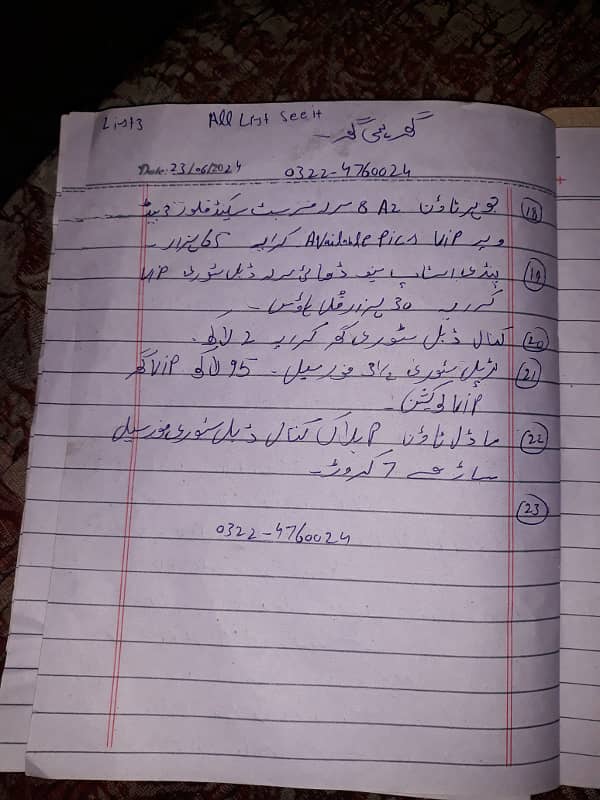 List3
All List see it
گھر ہی گھر
Date: 23/06/2024
0322-4760024
(18) جوہر ٹاؤن A2 8 مرلہ فرسٹ سیکنڈ فلور 3 بیڈ
Available Pics ViP کرایہ 65 ہزار
(19) پنڈی اسٹاپ ڈھائی مرلہ ڈبل سٹوری ViP
کرایہ 30 ہزار فل ہاؤس
(20) کنال ڈبل سٹوری گھر کرایہ 2 لاکھ
(21) ٹرپل سٹوری 3½ فور سیل - 95 لاکھ ViP گھر
ViP لوکیشن -
(22) ماڈل ٹاؤن P بلاک کنال ڈبل سٹوری فور سیل
ساڑھے 7 کروڑ -
(23)
0322-4760024